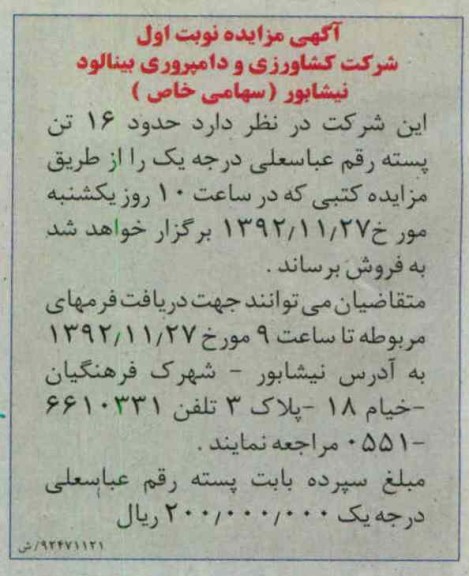 آگهی مزایده نوبت اول
شرکت کشاورزی و دامپروری بینالود
نیشابور ( سهامی خاص )
این شرکت در نظر دارد حدود ۱۶ تن
پسته رقم عباسعلی درجه یک را از طریق
مزایده کتبی که در ساعت ۱۰ روز یکشنبه
مور خ ۱۳۹۲/۱۱/۲۷ برگزار خواهد شد
به فروش برساند .
متقاضیان می توانند جهت دریافت فرمهای
مربوطه تا ساعت ۹ مورخ ۱۳۹۲/۱۱/۲۷
به آدرس نیشابور - شهرک فرهنگیان
-خیام ۱۸ -پلاک ۳ تلفن ۶۶۱۰۳۳۱
-۰۵۵۱ مراجعه نمایند .
مبلغ سپرده بابت پسته رقم عباسعلی
درجه یک ۲۰۰/۰۰۰/۰۰۰ ریال
۹۲۴۷۱۱۲۱/ش